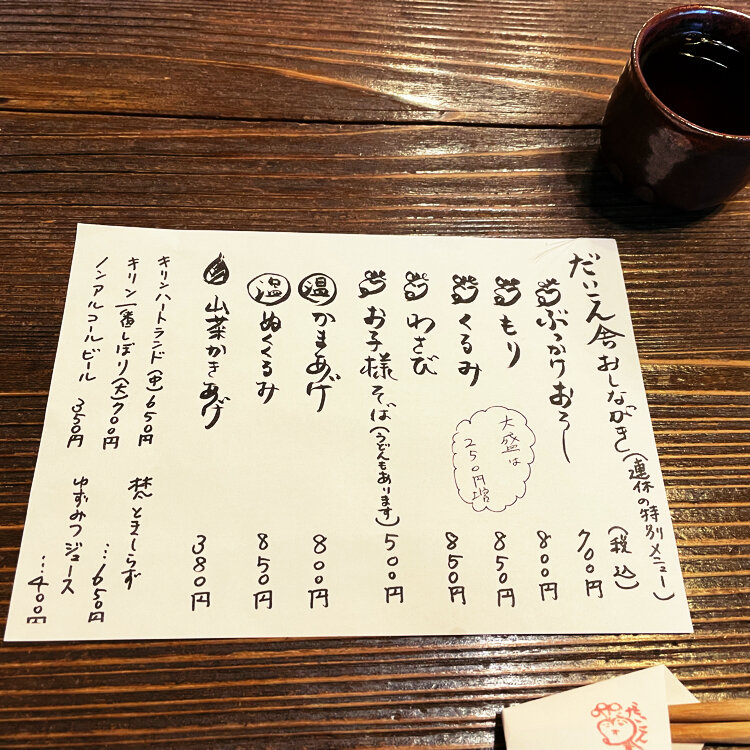 だいこん舎 おしながき(連休の特別メニュー)
(税込)
ぶっかけおろし 700円
もり 800円
くるみ 850円
わさび 850円
お子様そば(うどんもあります) 500円
大盛は
250円増
温 かまあげ 800円
温 ぬくくるみ 850円
山菜かきあげ 380円
キリンハートランド(中)650円
キリン一番しぼり(大)700円
ノンアルコールビール 350円
梵 ときしらず
…650円
ゆずみつジュース
…400円
だいこん